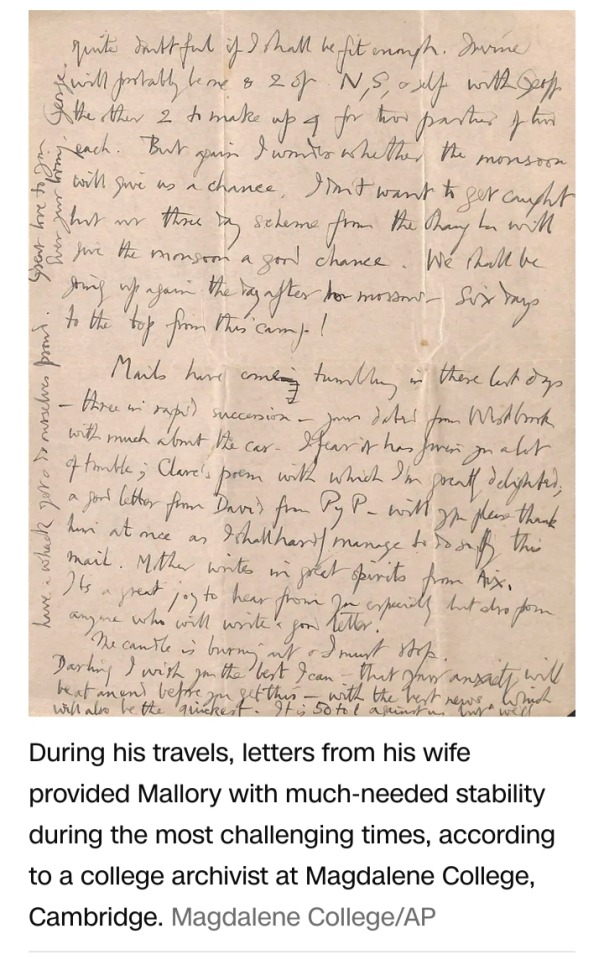 quite doubtful if I shall be fit enough. Irvine
will probably be one & 2 of N, S, & self with Geoff
the other 2 to make up 4 for two parties of two
each. But again I wonder whether the monsoon
will give us a chance. I don't want to get caught
but our three day scheme from the Chang La will
give the monsoon a good chance. We shall be
going up again the day after to morrow – Six days
to the top from this camp!
Mails have coming tumbling in these last days
– three in rapid succession – yours dated from Westbrook
with much about the car. I fear it has given you a lot
of trouble; Clare's poem with which I'm greatly delighted;
a good letter from David from PyP – will you please thank
him at once as I shall hardly manage to do so by this
mail. Mother writes in great spirits from Aix.
It's a great joy to hear from you especially but also from
anyone who will write a good letter.
The candle is burning out & I must stop.
Darling I wish you the best I can – that your anxiety will
be at an end before you get this – with the best news. Which
will also be the quickest. It is 50 to 1 against us but we'll
have a whack yet & do ourselves proud. Great love to you.
Ever your loving, George.
During his travels, letters from his wife
provided Mallory with much-needed stability
during the most challenging times, according
to a college archivist at Magdalene College,
Cambridge. Magdalene College/AP